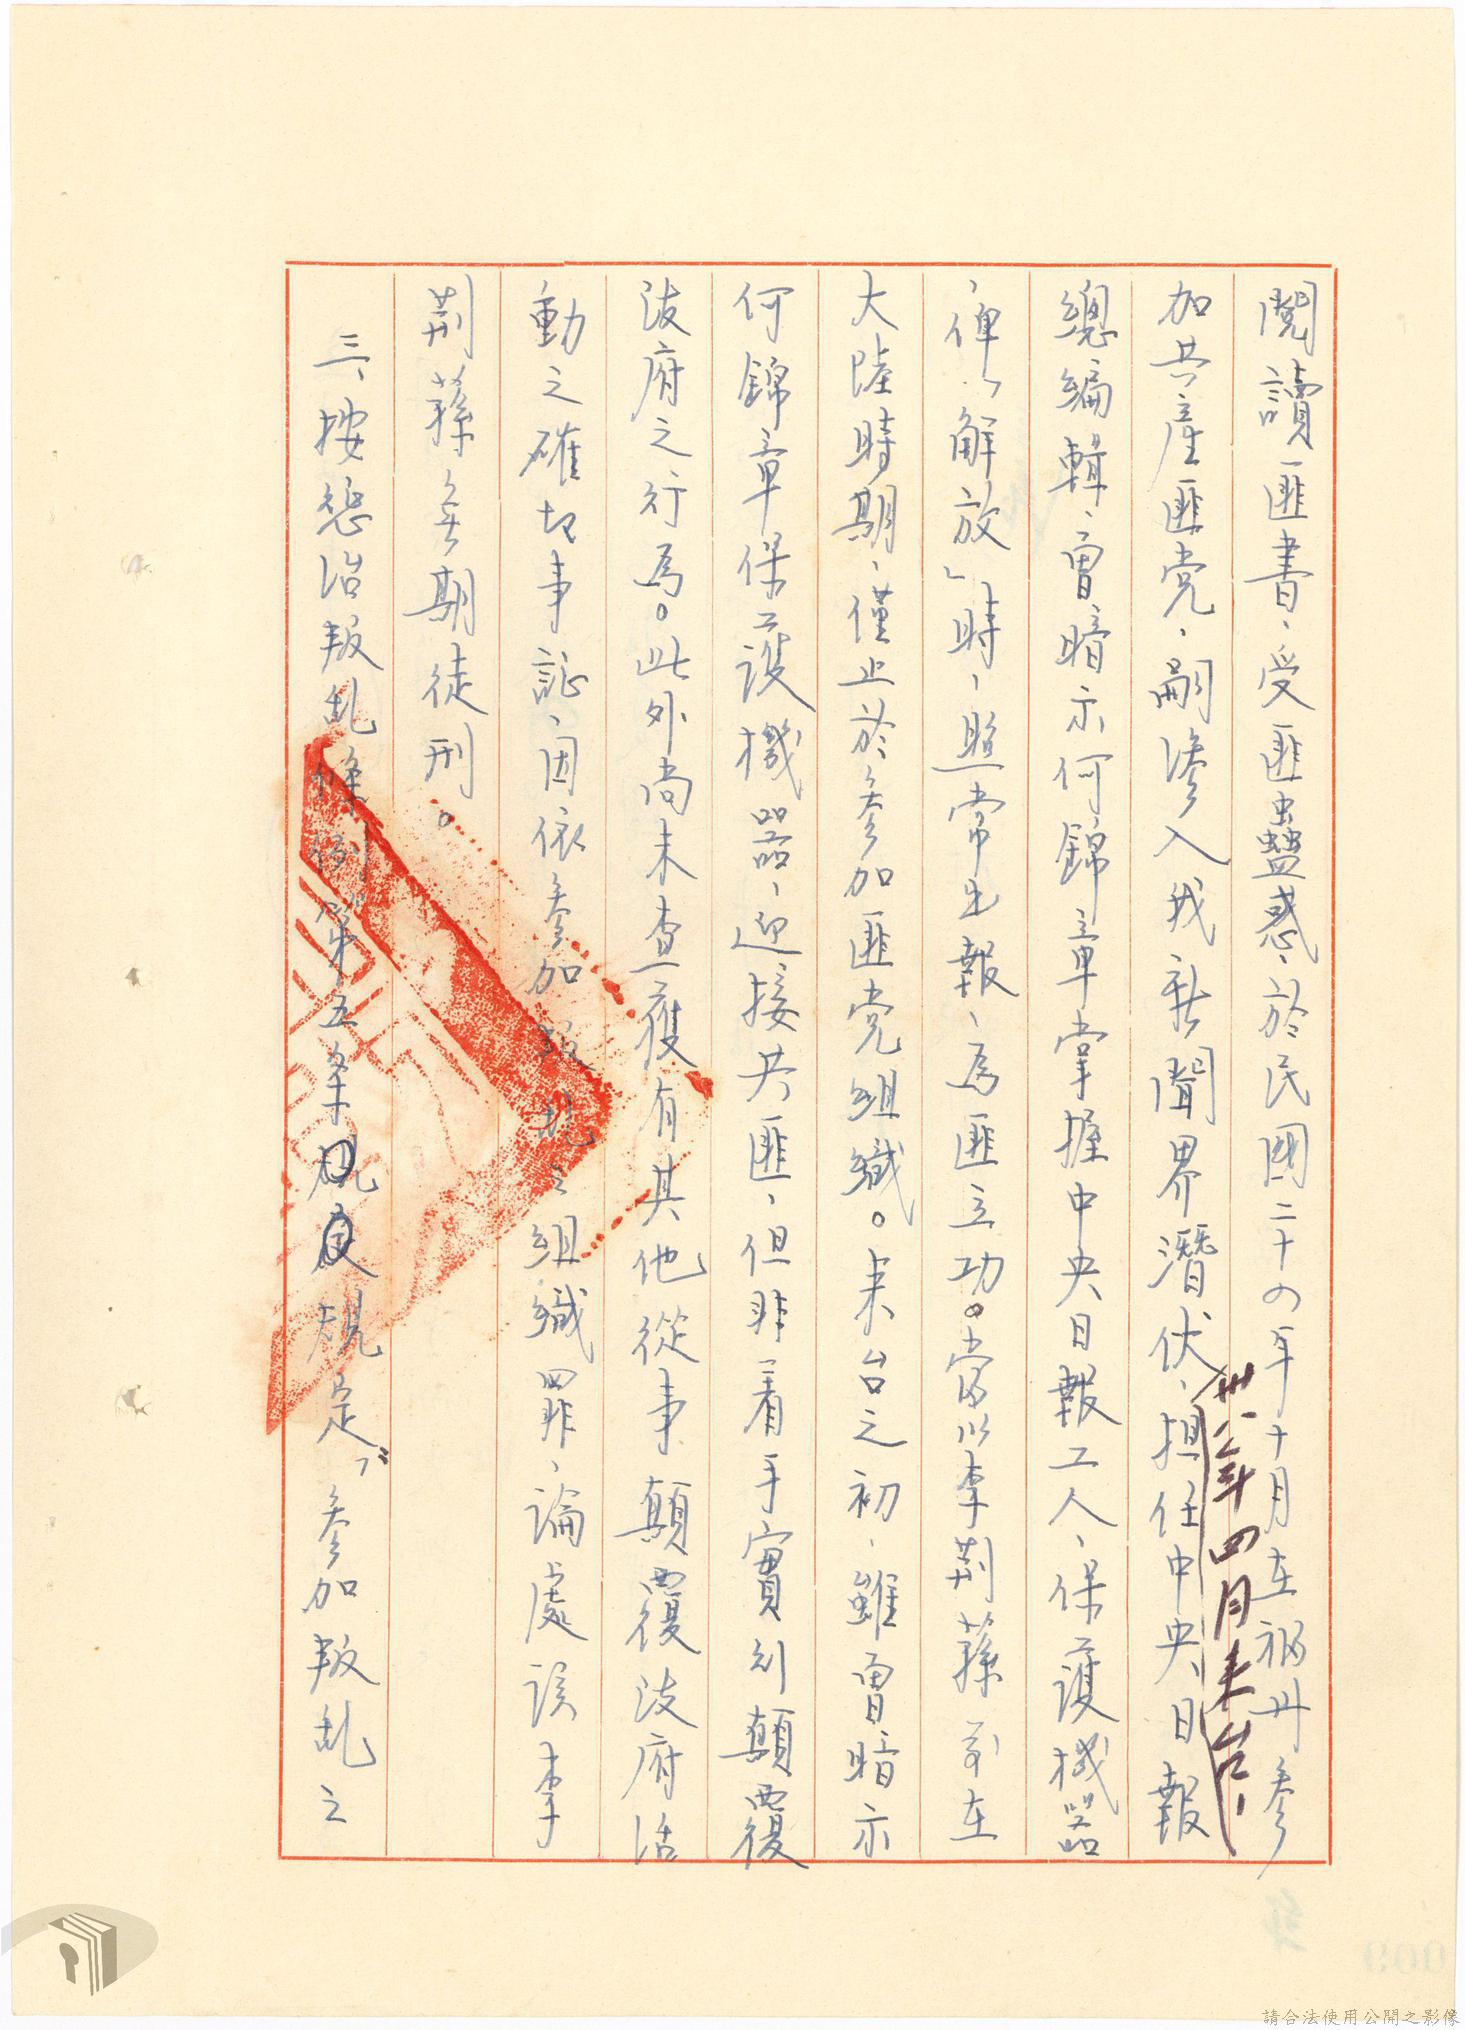 閱讀匪書、受匪蠱惑、於民國二十四年十月在福州參
加共產匪党、嗣滲入我新聞界潛伏、担任中央日報
卅八年四月來台、
總編輯、曾暗示何錦章掌握中央日報工人、保護機器
、俾「解放」時、照常出報、為匪立功。當以李荆蓀前在
大陸時期、僅止於參加匪党組織。來台之初、雖曾暗示
何錦章保護機器、迎接共匪、但非着手實行顛覆
政府之行為。此外尚未查獲有其他從事顛覆政府活
動之確切事証、因依參加叛乱之組織罪、論處該李
荆蓀無期徒刑。
三、按懲治叛乱條例第五条規定、參加叛乱之
請合法使用公開之影像